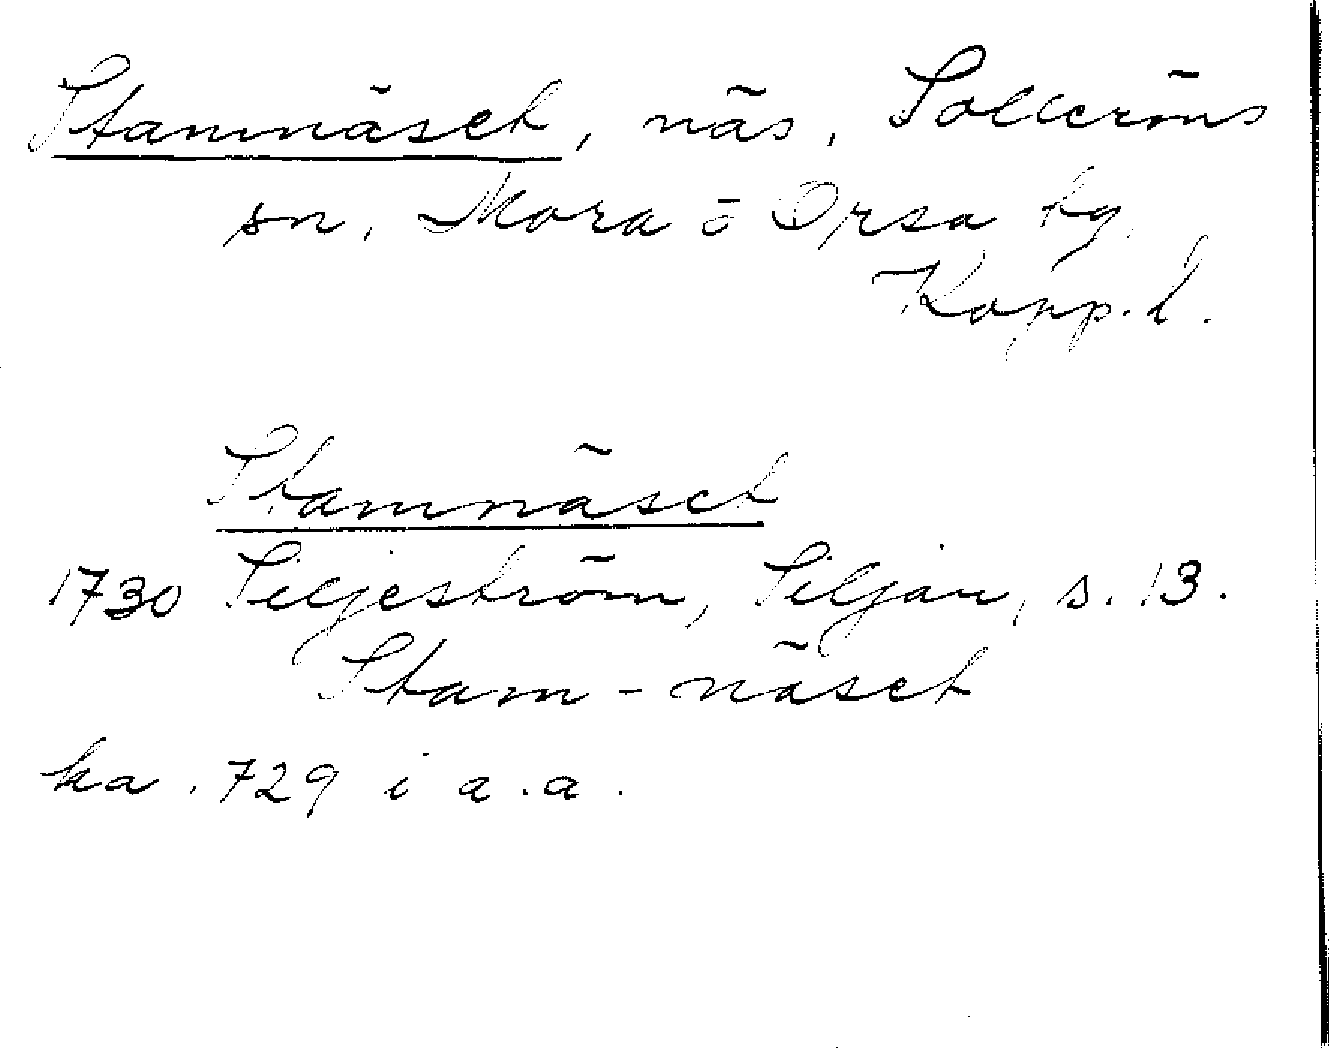 Stamnäset, näs, Solleröns
sn, Mora o Orsa tg.
Kopp. l.
Stamnäset
1730 Siljeström, Siljan, s. 13.
Stam-näset
ka. 729 i a.a.